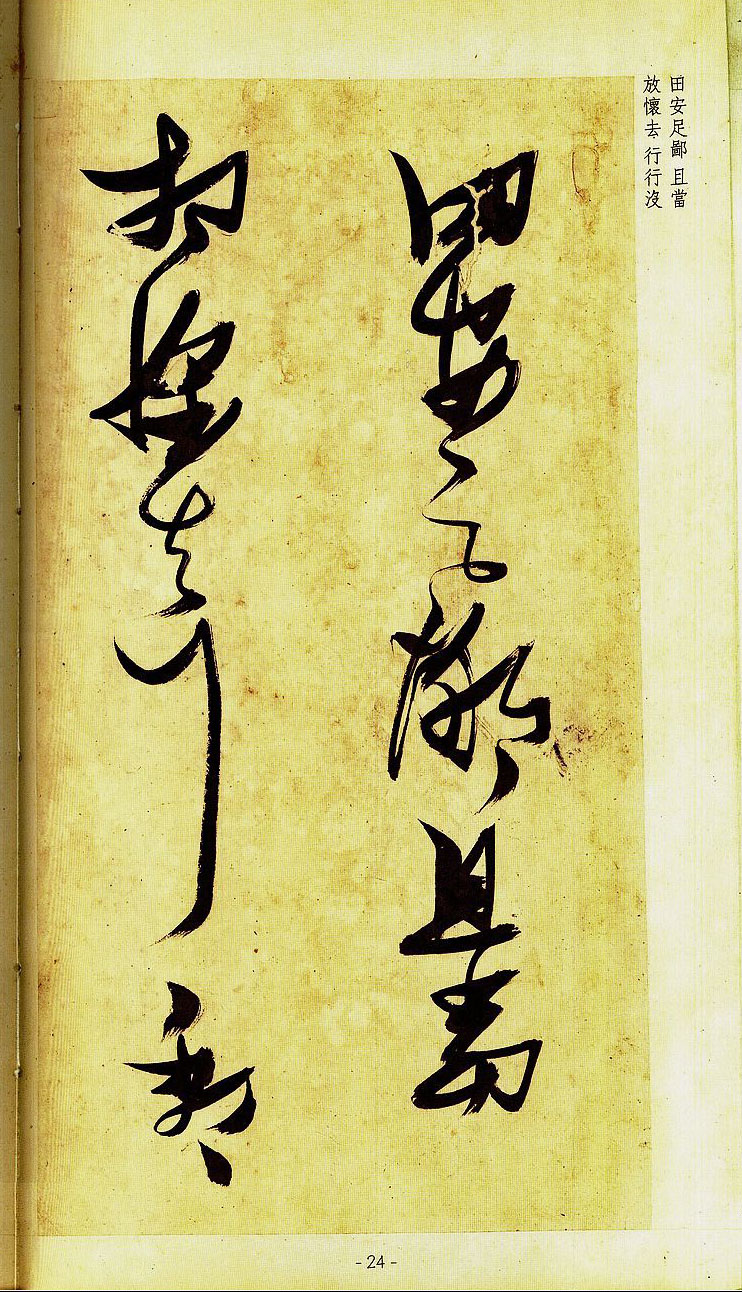 田安足鄙 且當
放懷去 行行沒
田安足鄙且當
放懷去行行沒
- 24 -